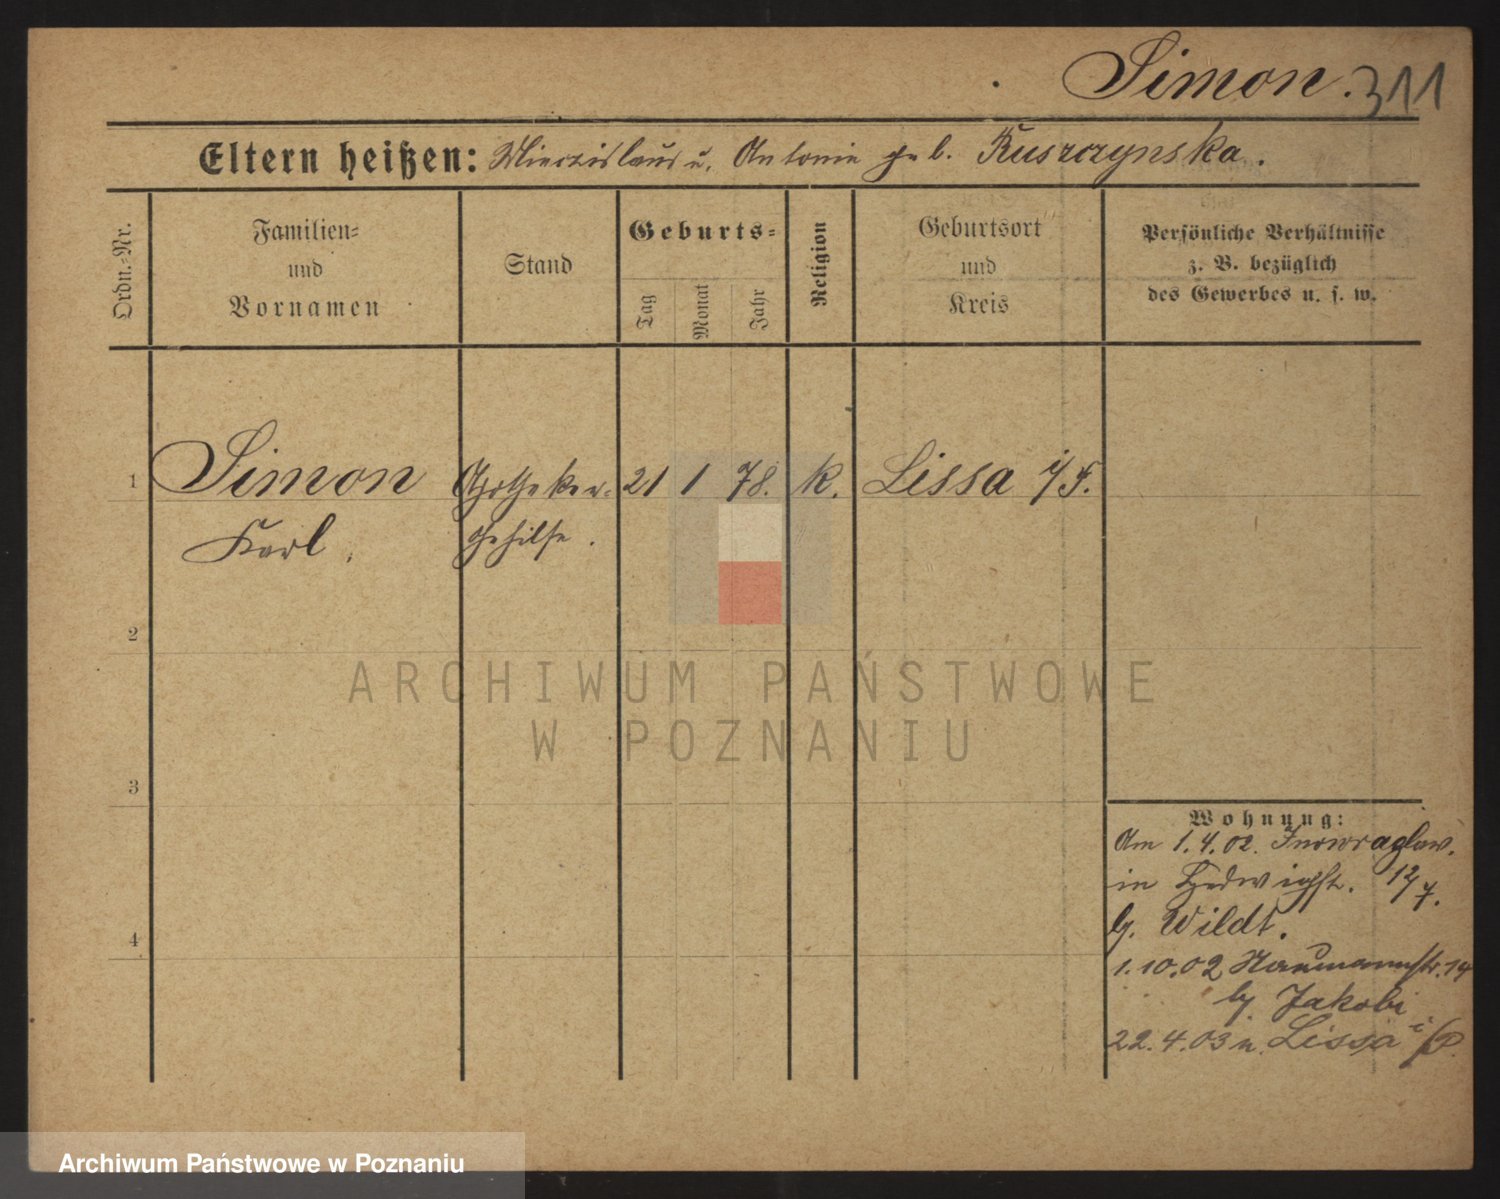 Simon. 311
Eltern heißen: Miecislaus u. Antonie geb. Kuszczynska.
Ordn.-Nr.
Familien-
und
Vornamen
Stand
Geburts-
Tag
Monat
Jahr
Religion
Geburtsort
und
Kreis
Persönliche Verhältnisse
z. B. bezüglich
des Gewerbes u. s. w.
1 Simon Apotheker- 21 1 78. k. Lissa i/P.
Karl. gehilfe.
2
3
4
Wohnung:
Am 1.4.02. Inowrazlaw.
in Hedwigstr. 12/7.
b. Wildt.
1.10.02 Naumannstr. 14
b. Jakobi
22.4.03 n. Lissa i/P.
ARCHIWUM PAŃSTWOWE
W POZNANIU
Archiwum Państwowe w Poznaniu